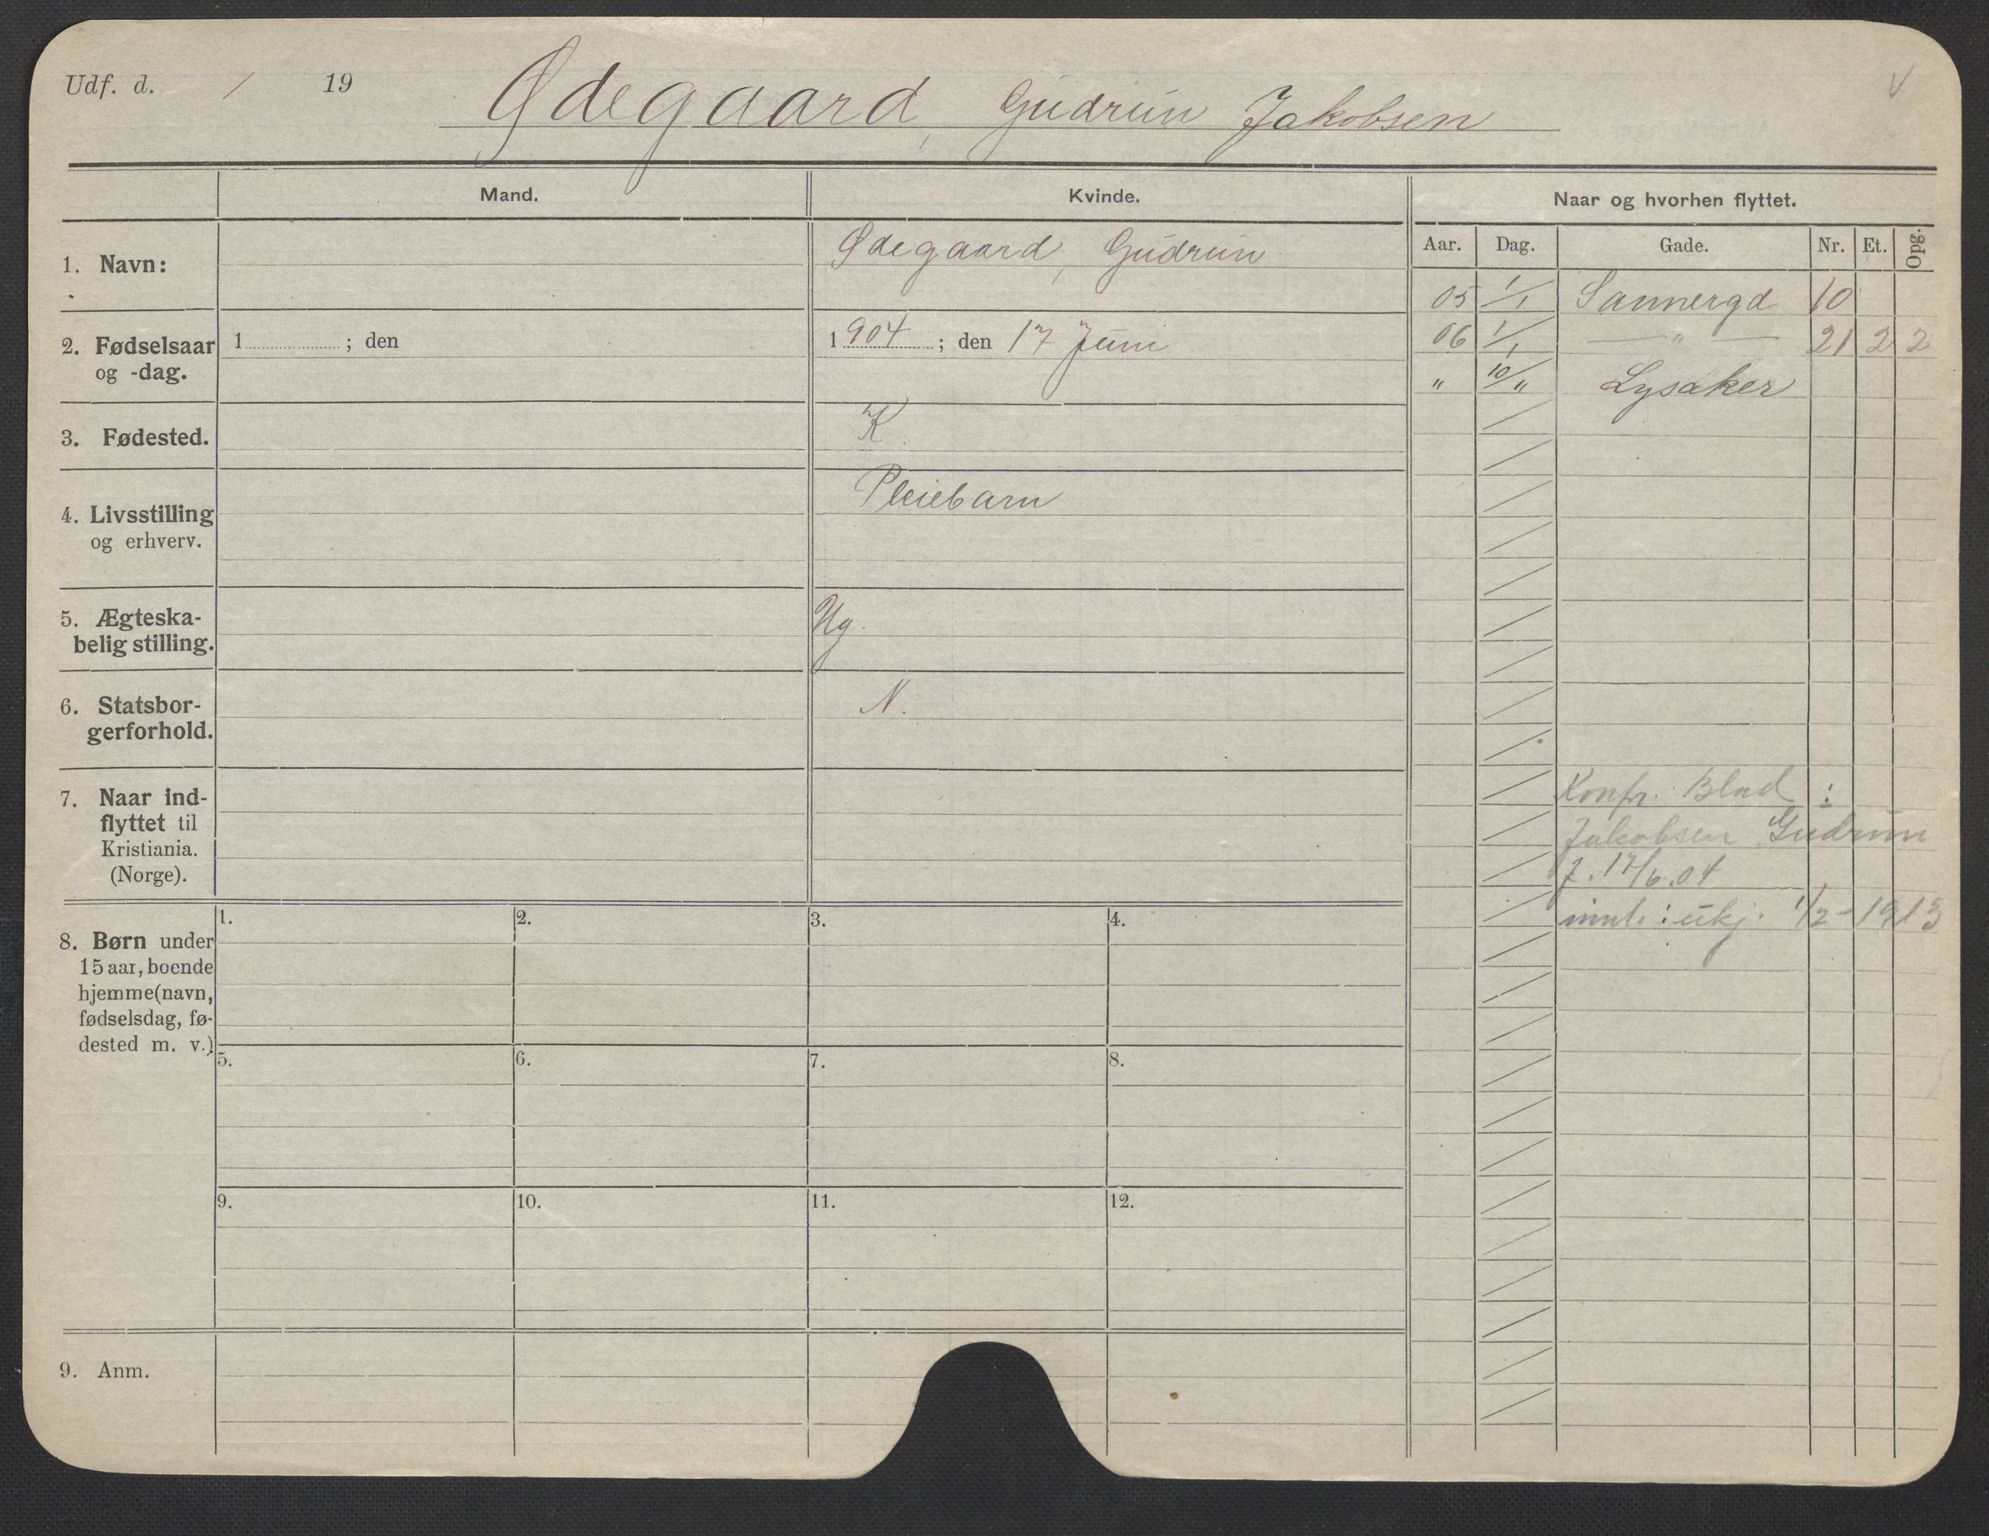 Udf. d. / 19 Ødegaard, Gudrun Jakobsen
Mand. Kvinde. Naar og hvorhen flyttet.
Aar. Dag. Gade. Nr. Et. Opg.
1. Navn: Ødegaard, Gudrun
05 1/1 Sannergd 10
2. Fødselsaar 1 ; den 1904 ; den 17 Juni
og -dag.
06 1/1 — " — 21 2 2
" 10/" Lysaker
3. Fødested. K
4. Livsstilling Pleiebarn
og erhverv.
5. Ægteska-
belig stilling. Ug.
6. Statsbor- N.
gerforhold.
7. Naar ind-
flyttet til
Kristiania.
(Norge).
Konfr. Blad :
Jakobsen Gudrun
f. 17/6.04
innl. : ukj. 1/2-1913
8. Børn under
15 aar, boende
hjemme (navn,
fødselsdag, fø-
dested m. v.)
1. 2. 3. 4.
5. 6. 7. 8.
9. 10. 11. 12.
9. Anm.